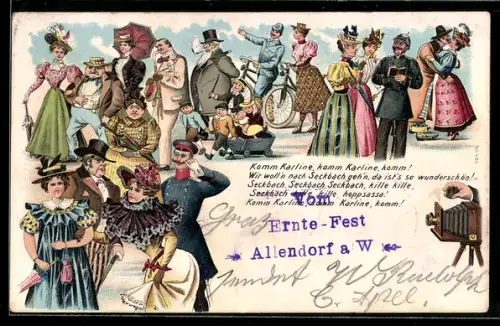 Komm Karline, komm Karline, komm!
Wir woll'n nach Seckbach geh'n, da ist's so wunderschön!-
Seckbach, Seckbach, Seckbach, kille kille,
Seckbach kille kille hoppsassa!
Komm Karline, komm Karline, komm!
Vom
Ernte-Fest
Allendorf a/W
Gruß
sendet W. Rudolph
C. Apel.